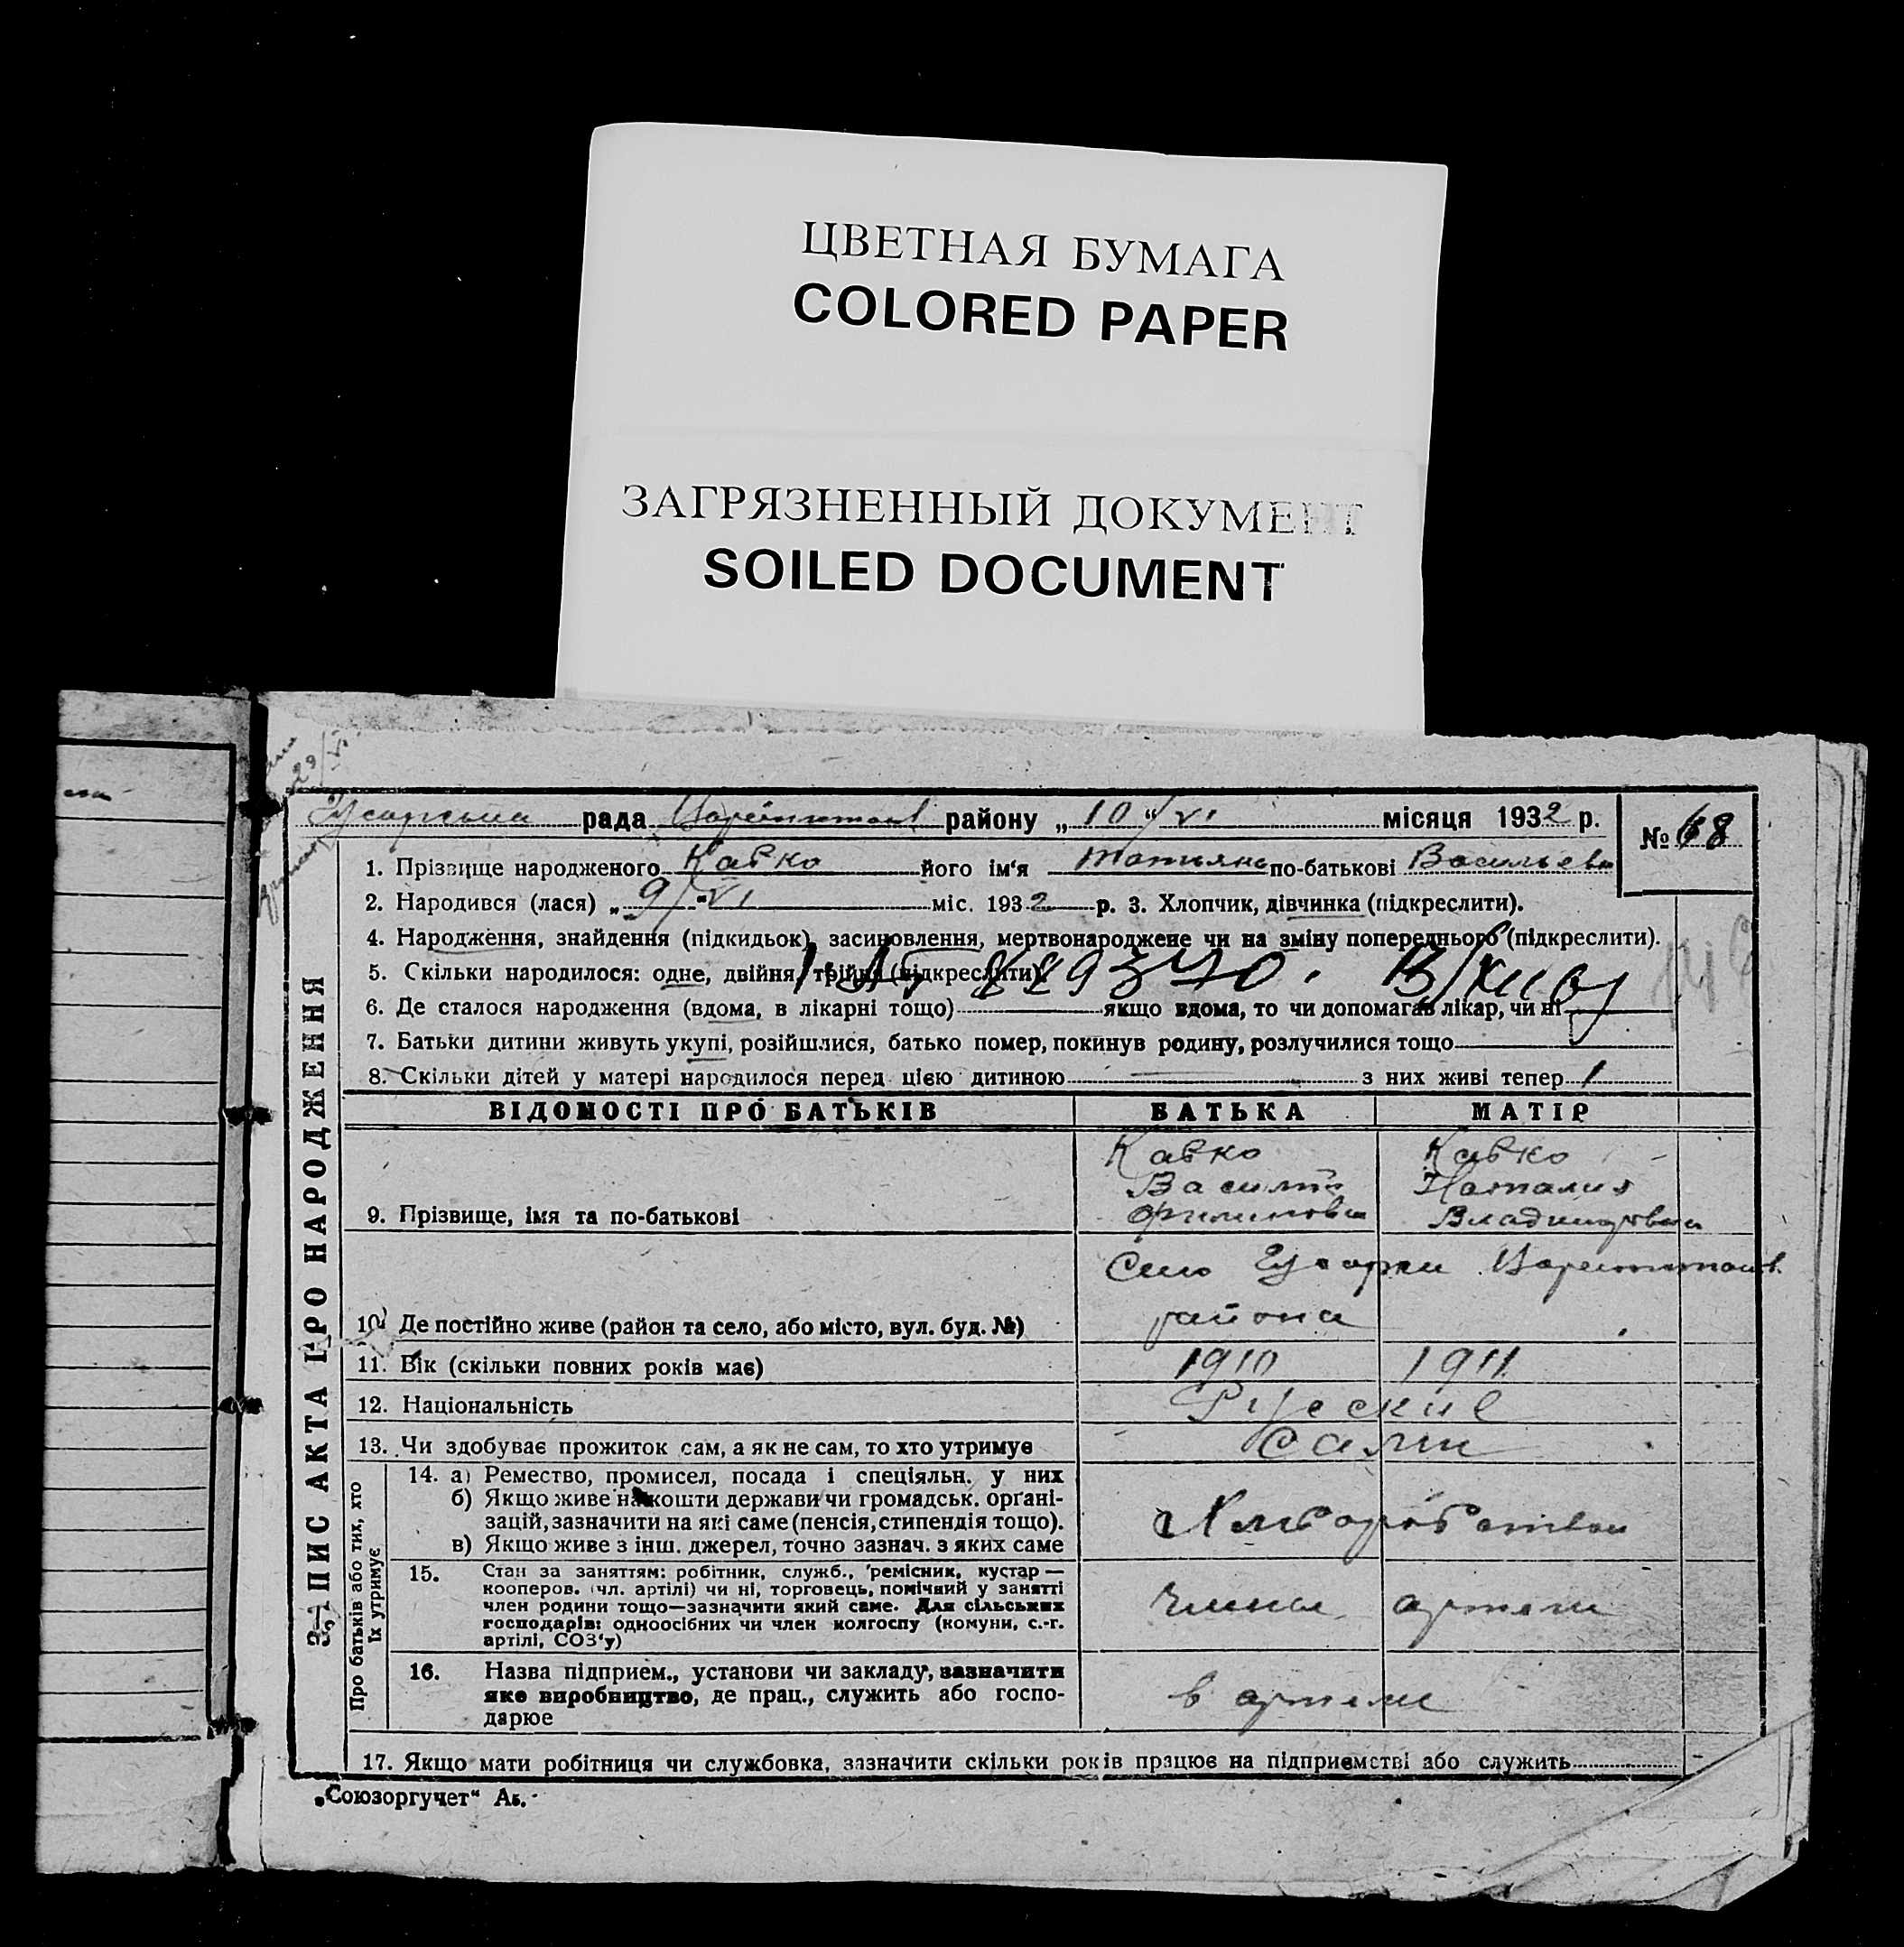 ЦВЕТНАЯ БУМАГА
COLORED PAPER
ЗАГРЯЗНЕННЫЙ ДОКУМЕНТ
SOILED DOCUMENT
рада району „10“ VI місяця 1932 р.
№ 68
1. Прізвище народженого Кавко його ім‘я Татьяна по-батькові Васильевна
2. Народився (лася) „9“ VI міс. 1932 р. 3. Хлопчик, дівчинка (підкреслити).
4. Народження, знайдення (підкидьок), засиновлення, мертвонароджене чи на зміну попереднього (підкреслити).
5. Скільки народилося: одне, двійня, трійня (підкреслити)
6. Де сталося народження (вдома, в лікарні тощо) якщо вдома, то чи допомагав лікар, чи ні
7. Батьки дитини живуть укупі, розійшлися, батько помер, покинув родину, розлучилися тощо
8. Скільки дітей у матері народилося перед цією дитиною — з них живі тепер 1
ВІДОМОСТІ ПРО БАТЬКІВ БАТЬКА МАТІР
Кавко Кавко
Василь Наталия
Филипович Владимировна
9. Прізвище, імя та по-батькові
Село Гусарки
района
10. Де постійно живе (район та село, або місто, вул. буд. №)
11. Вік (скільки повних років має) 1910 1911
12. Національність Руские
13. Чи здобуває прожиток сам, а як не сам, то хто утримує Сами
14. а) Ремество, промисел, посада і спеціяльн. у них
б) Якщо живе на кошти держави чи громадськ. орґані-
зацій, зазначити на які саме (пенсія, стипендія тощо).
в) Якщо живе з інш. джерел, точно зазнач. з яких саме
Хлеборобством
15. Стан за заняттям: робітник, служб., ремісник, кустар —
кооперов. (чл. артілі) чи ні, торговець, помічний у занятті
член родини тощо—зазначити який саме. Для сільських
господарів: одноосібних чи член колгоспу (комуни, с.-г.
артілі, СОЗ‘у)
члены артели
16. Назва підприєм., установи чи закладу, зазначити
яке виробництво, де прац., служить або госпо-
дарює
в артели
17. Якщо мати робітниця чи службовка, зазначити скільки років працює на підприємстві або служить
„Союзоргучет“
ЗАПИС АКТА ПРО НАРОДЖЕННЯ
Про батьків або тих, хто
їх утримує